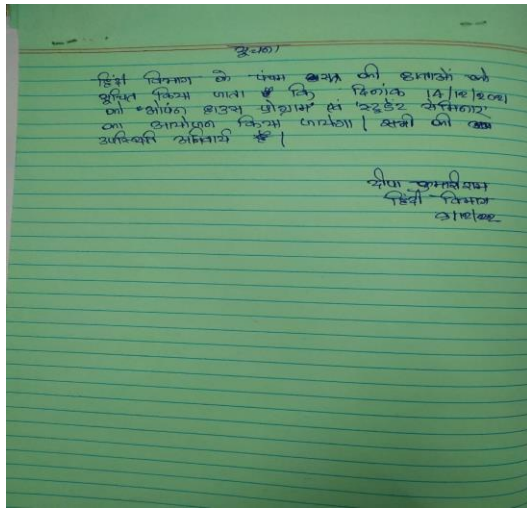 सूचना
हिंदी विभाग के पंचम सत्र की छात्राओं को
सूचित किया जाता है कि दिनांक 14/12/2021
को "ओपन हाउस प्रोग्राम" एवं 'स्टुडेंट सेमिनार'
का आयोजन किया जायेगा | सभी की
उपस्थिति अनिवार्य है |
दीपा कुमारी राम
हिंदी विभाग